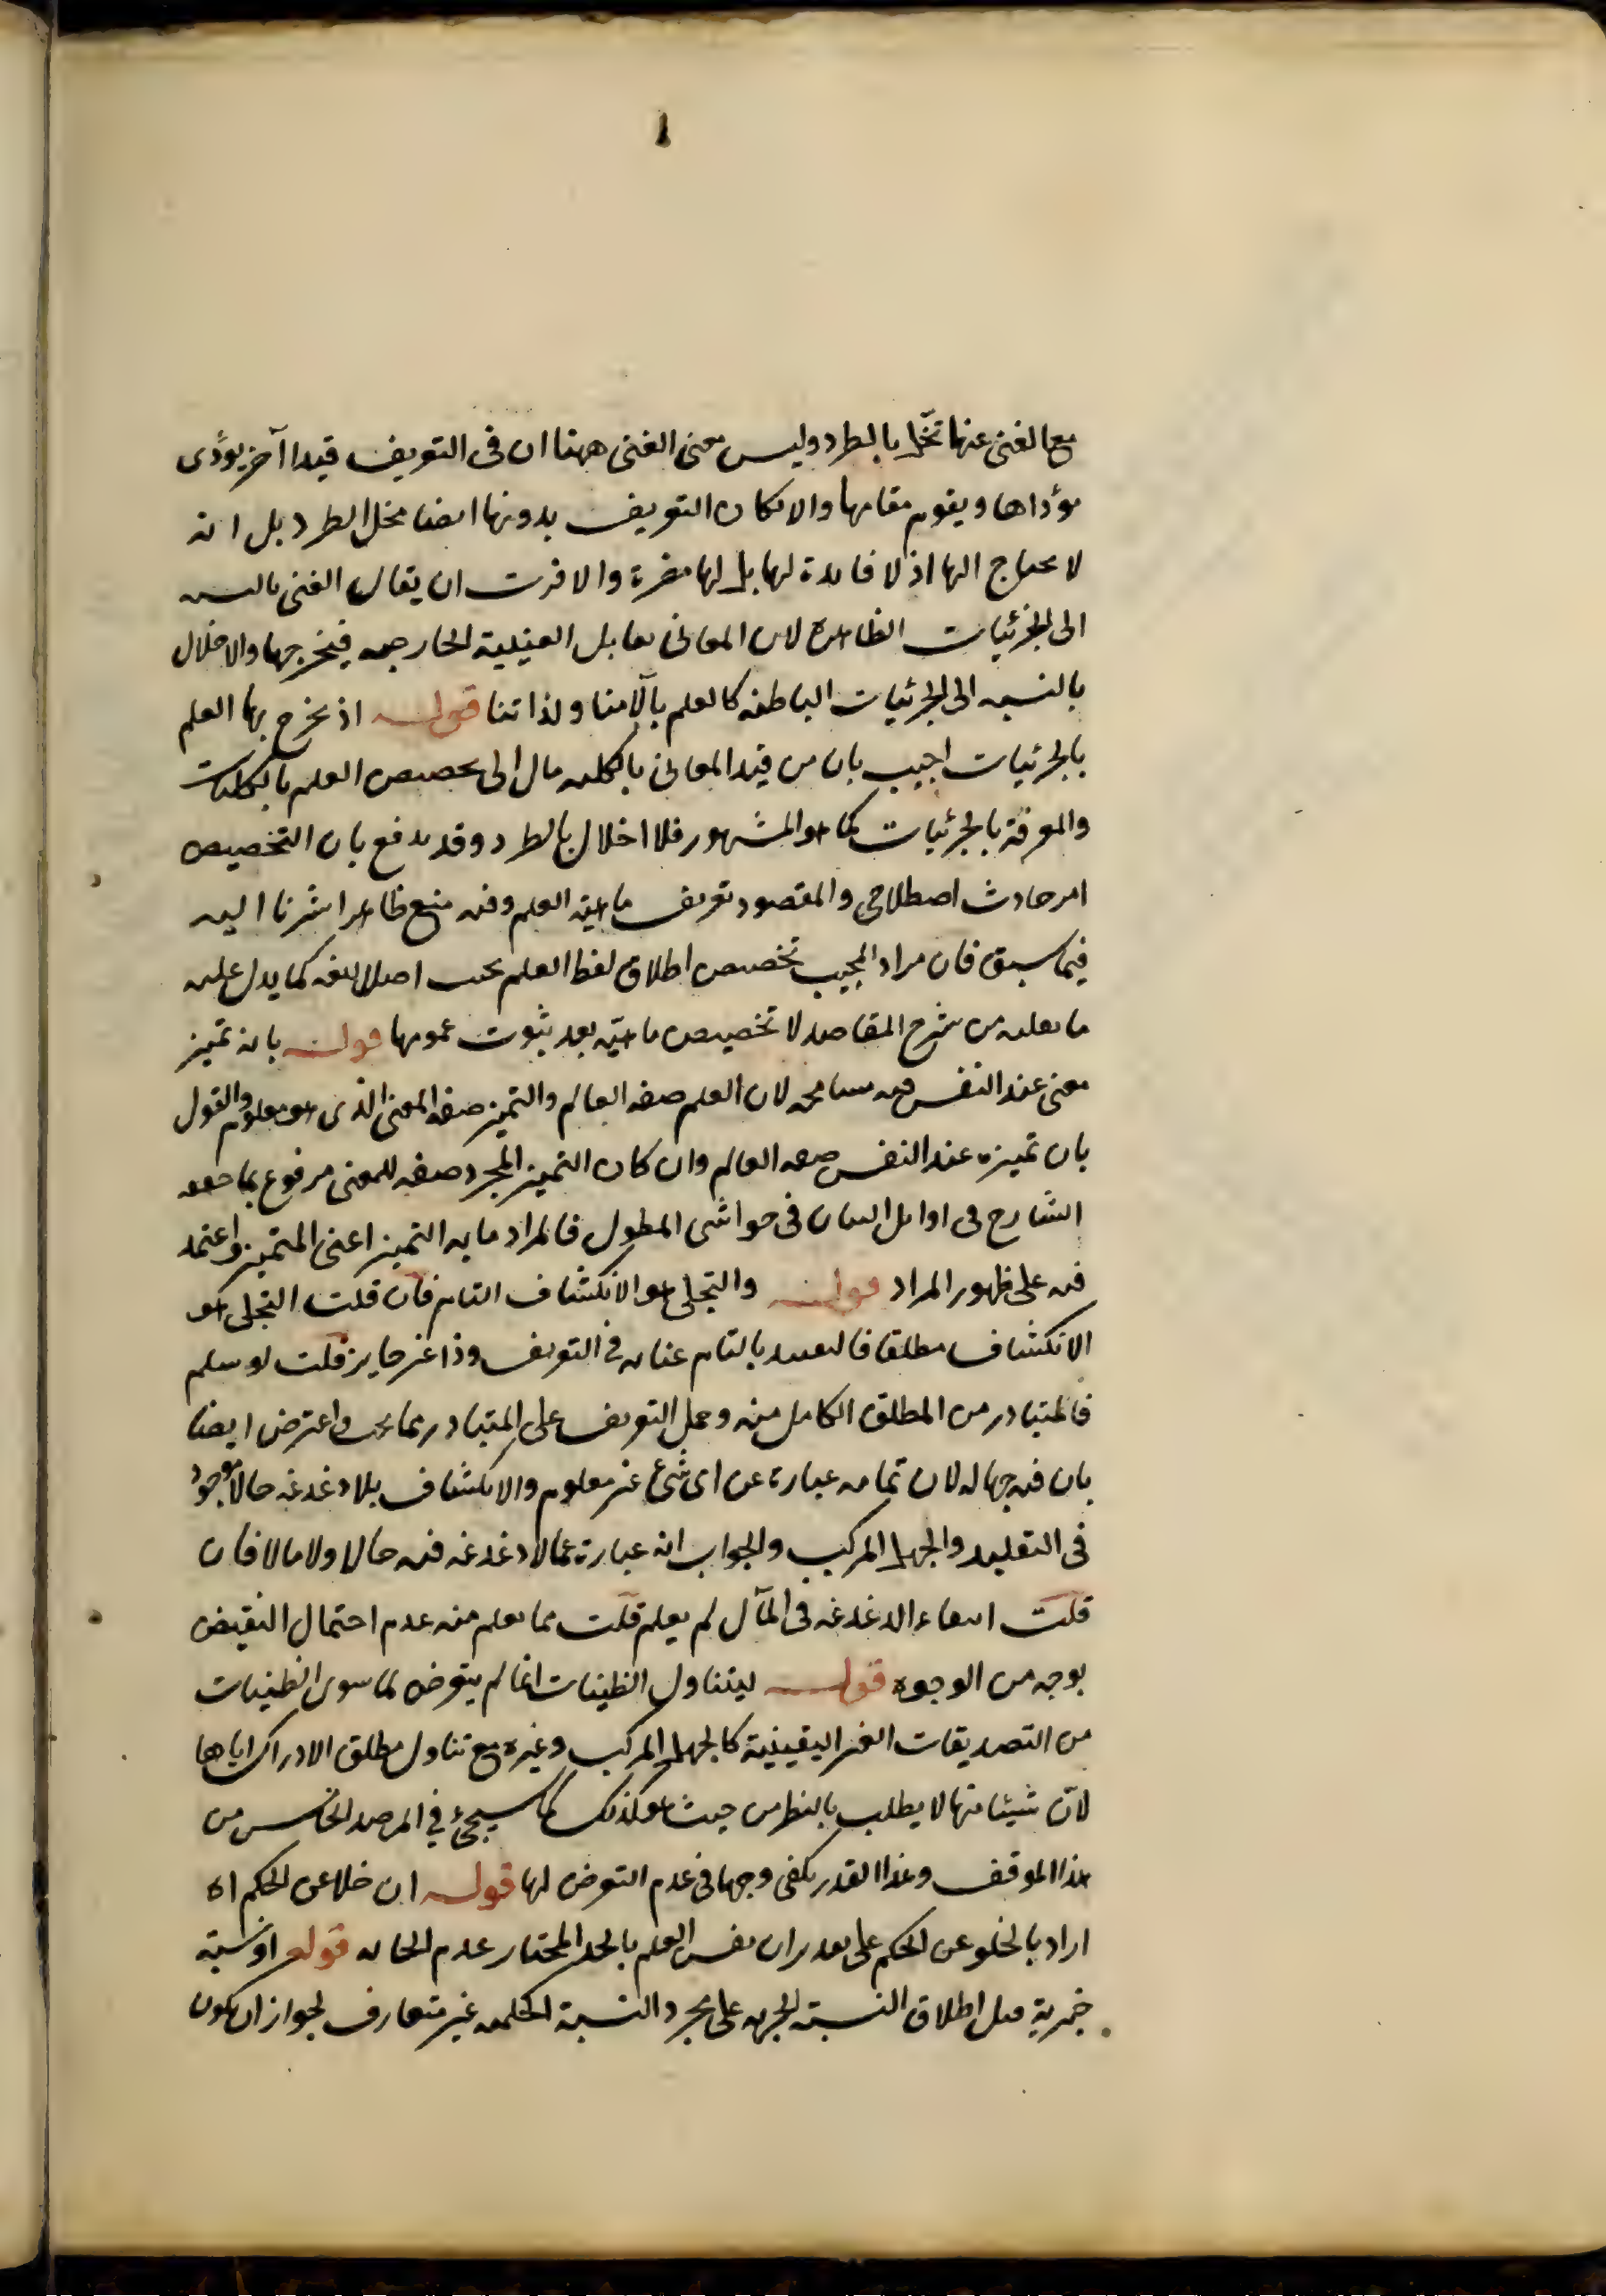 ١
مع الغنى عنها تخل بالطرد وليس معنى الغنى ههنا ان فى التعريف قيدا آخر يؤدى
مؤداها ويقوم مقامها والا لكان التعريف بدونها ايضا مخل الطرد بل انه
لا يحتاج اليها اذ لا فائدة لها بل لها مضرة والاقرب ان يقال الغنى بالنسبة
الى الجزئيات الظاهرة لان المعانى تقابل العينية الخارجية فيخرجها والاخلال
بالنسبة الى الجزئيات الباطنة كالعلم بآلامنا ولذاتنا قوله اذ يخرج بها العلم
بالجزئيات اجيب بان من قيد المعانى بالكلية مال الى تخصيص العلم بالكليات
والمعرفة بالجزئيات كما هو المشهور فلا اخلال بالطرد وقد يدفع بان التخصيص
امر حادث اصطلاحى والمقصود تعريف ماهية العلم وفيه منع ظاهر اشرنا اليه
فيما سبق فان مراد المجيب تخصيص اطلاق لفظ العلم بحسب اصل اللغة كما يدل عليه
ما نقلته من شرح المقاصد لا تخصيص ماهيته بعد ثبوت عمومها قوله بانه تميز
معنى عند النفس فيه مسامحة لان العلم صفة العالم والتميز صفة المعنى الذى هو معلوم والقول
بان تميزه عند النفس صفة العالم وان كان التميز المجرد صفة للمعنى مرفوع بما حققه
الشارح فى اوائل البيان فى حواشى المطول فالمراد ما به التميز اعنى المتميز واعتمد
فيه على ظهور المراد قوله والتجلى هو الانكشاف التام فان قلت التجلى هو
الانكشاف مطلقا فالتقييد بالتام عناية فى التعريف وذا غير جايز قلت لو سلم
فالمتبادر من المطلق الكامل منه وحمل التعريف على المتبادر مما يجب واعترض ايضا
بان فيه جهالة لان تمامه عبارة عن اى شئ غير معلوم والانكشاف بلا دغدغة حالا موجود
فى التقليد والجهل المركب والجواب انه عبارة عما لا دغدغة فيه حالا ولا مآلا فان
قلت انتفاء الدغدغة فى المآل لم يعلم قلت مما يعلم منه عدم احتمال النقيض
بوجه من الوجوه قوله ليتناول الظنيات انما لم يتعرض لما سوى الظنيات
من التصديقات الغير اليقينية كالجهل المركب وغيره مع تناول مطلق الادراك اياها
لان شيئا منها لا يطلب بالنظر من حيث هو كذلك كما سيجئ فى المرصد الخامس من
هذا الموقف وهذا القدر يكفى وجها فى عدم التعرض لها قوله ان خلا عن الحكم اه
اراد بالخلو عن الحكم على تقدير ان يفسر العلم بالحد المختار عدم ايجابه قوله او نسبة
خبرية قيل اطلاق النسبة الخبرية على مجرد النسبة الحكمية غير متعارف لجواز ان يكون